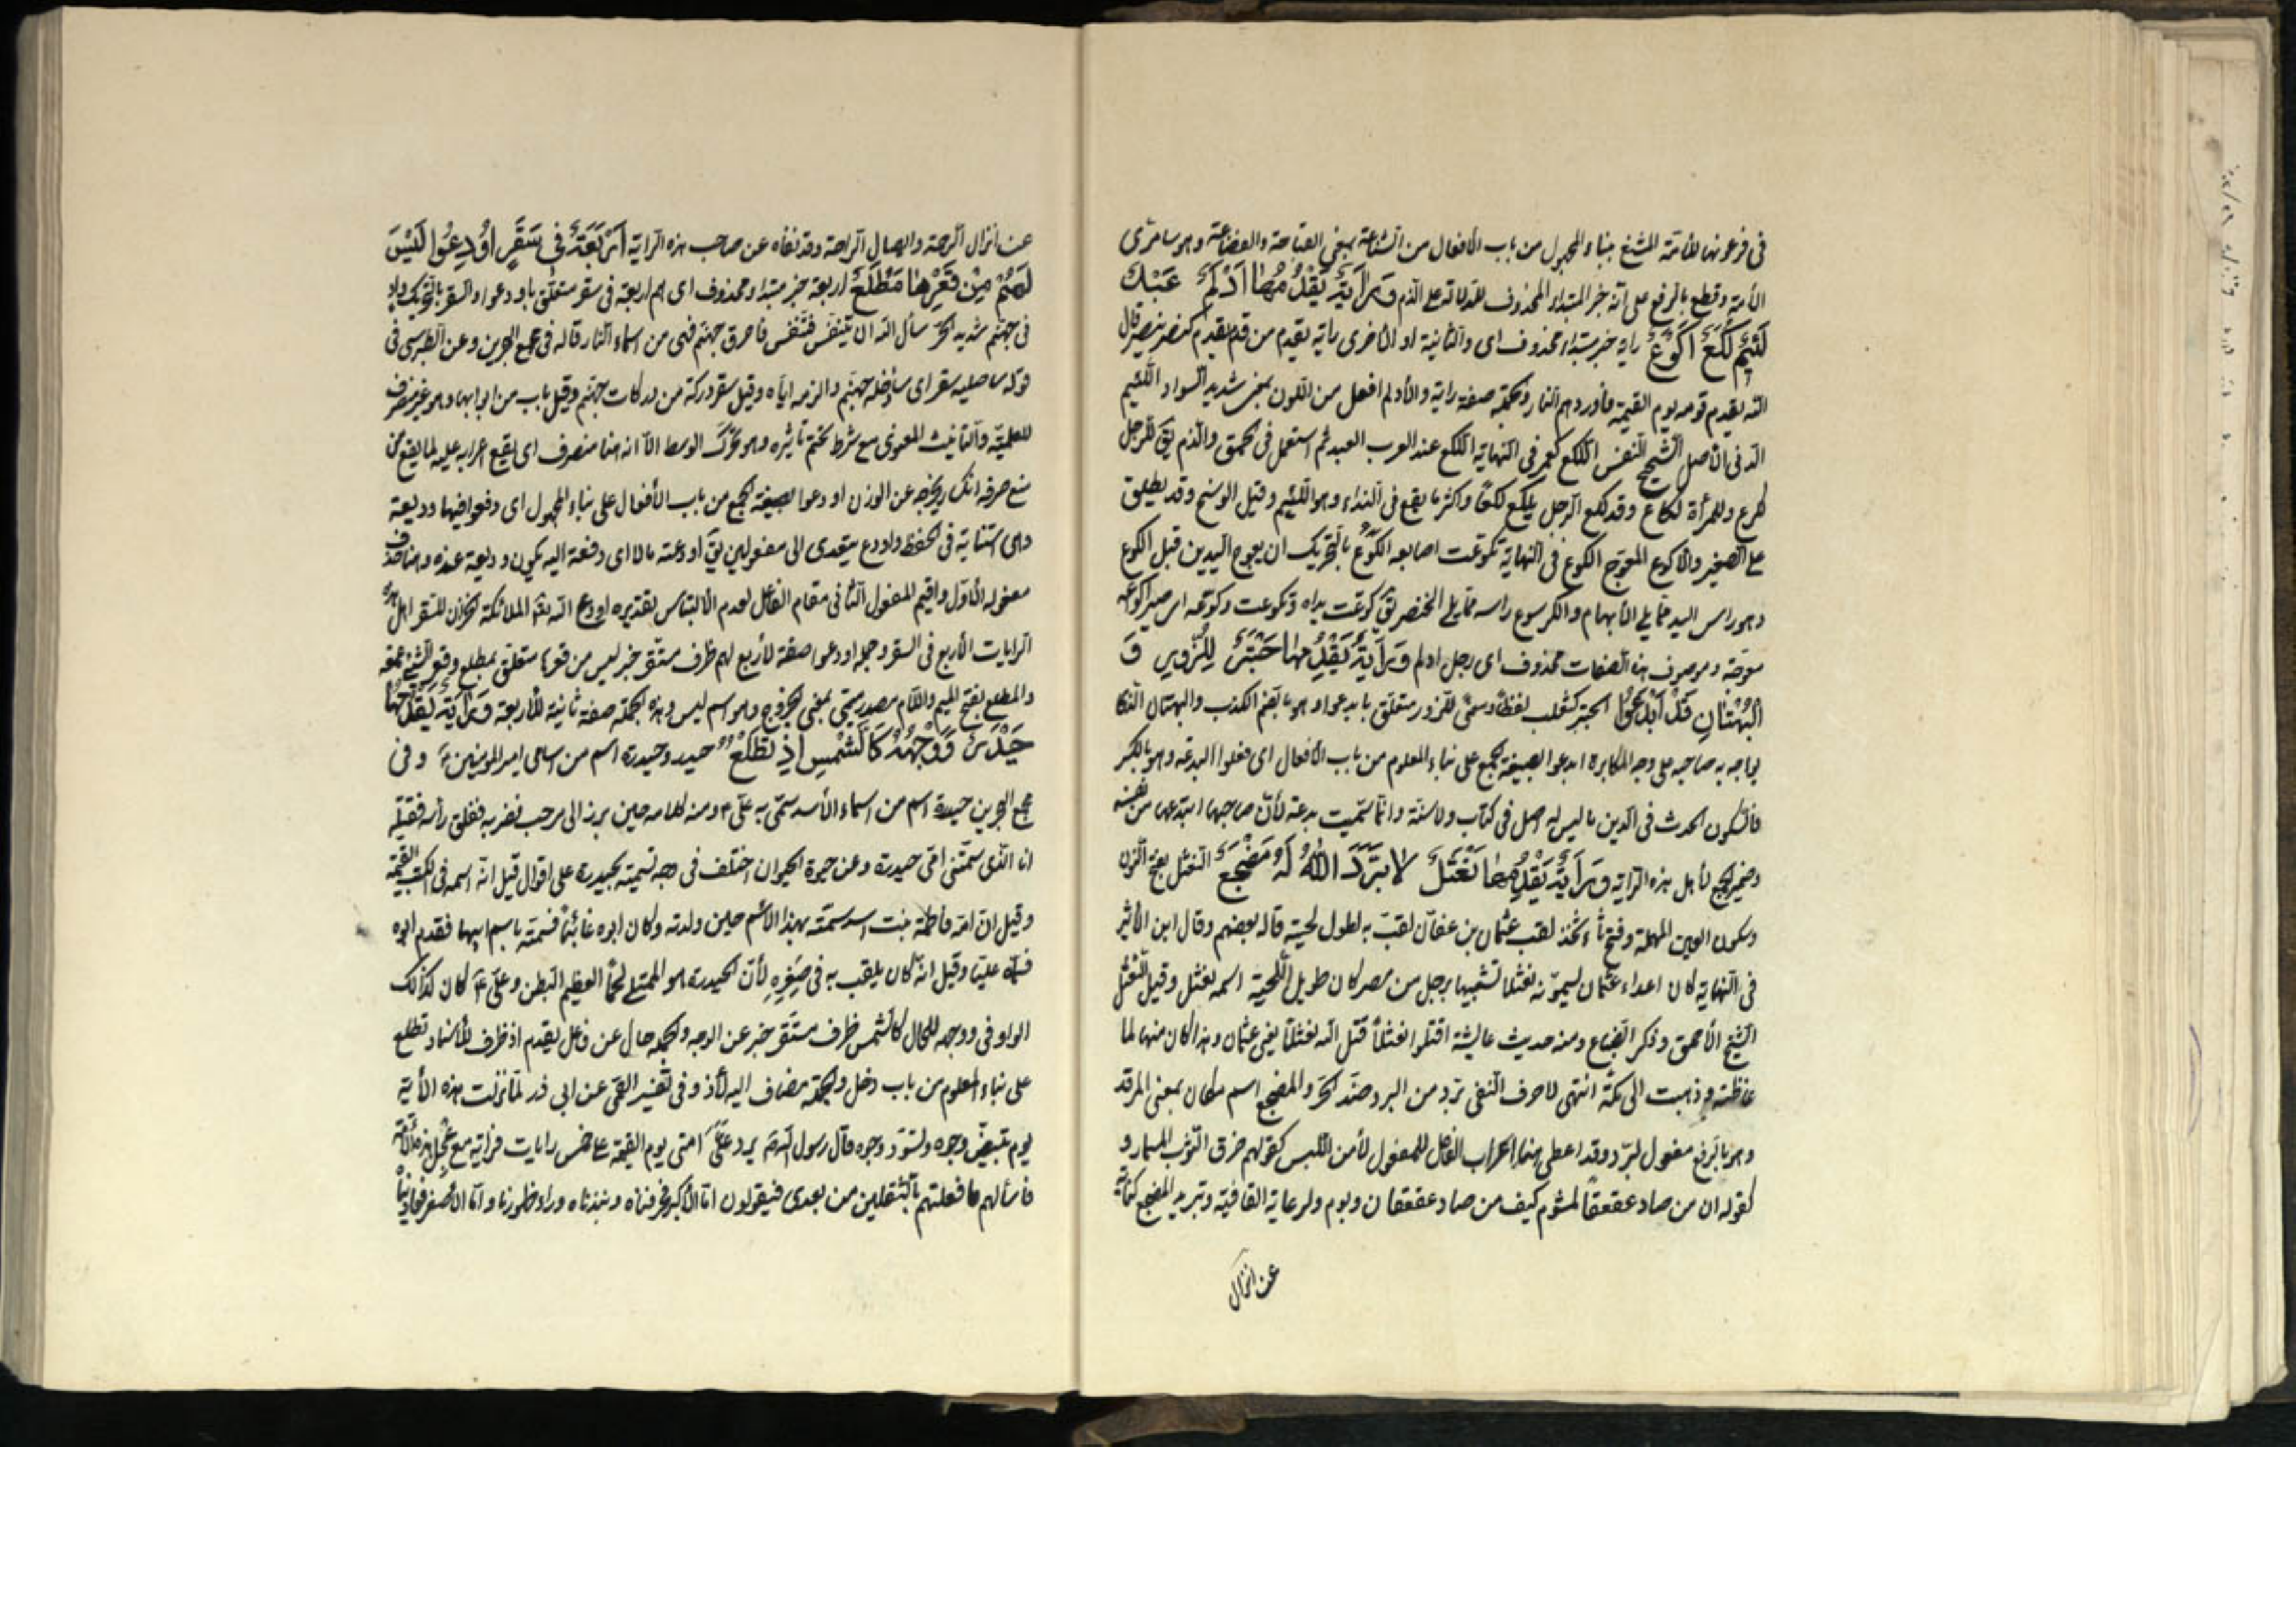 فى فرعونها للأمّة المشنع بناء المجهول من باب الأفعال من الشناعة بمعنى القباحة والفضاعة وهو سامرى
الأمة وقطع بالرفع على انّه خبر المبتداء المحذوف للدلالة على الذم وَرَايَةٌ يَقْدُمُهٰا اَدْلَمٌ عَبْدٌ
لَئيمٌ لُكَعٌ اَكْوَعٌ راية خبر مبتداء محذوف اى والثانية او الأخرى راية يقدم من قدم يقدم كنصر ينصر قال
الله يقدم قومه يوم القيمة فأوردهم النار والجملة صفة راية والأدلم افعل من اللون بمعنى شديد السواد اللئيم
الدنى الأصل الشحيح النفس اللكع كعمر فى النهاية اللكع عند العرب العبد ثم استعمل فى الحمق والذم يقَ للرجل
لكع وللمرأة لكاع وقد لكع الرجل يلكع لكعًا واكثر ما يقع فى النداء وهو اللئيم وقيل الوسخ وقد يطلق
على الصغير والاكوع المعوّج الكوع فى النهاية تكوّعت اصابعه الكَوَع بالتحريك ان يعوج اليدين قبل الكوع
وهو راس اليد ممّا يلى الأبهام والكرسوع راسه ممّا يلى الخنصر يقَ كوعت يداه وتكوعت وكوّعه اى صير اكواعه
معوّجة وموصوف هذه الصفات محذوف اى رجل ادلم وَرَايَةٌ يَقْدُمُهٰا حَبْتَرٌ لِلزُّورِ وَ
الْبُهْتٰانِ قَدْ اَبْدَعُوا الحبتر كثعلب لفظًا ومعنًى للزور متعلّق بابدعوا وهو بالضم الكذب والبهتان الذى
يواجه به صاحبه على وجه المكابرة ابدعوا بصيغة الجمع على بناء المعلوم من باب الأفعال اى فعلوا البدعة وهو بالكسر
فالسكون الحدث فى الدين ما ليس له اصل فى كتاب ولا سنّة وانّما سمّيت بدعة لأنّ صاحبها ابتدعها من نفسه
وضمير الجمع لأهل هذه الراية وَرَايَةٌ يَقْدُمُهٰا نَعْثَلٌ لا بَرَّدَ اللهُ لَهُ مَضْجَعٌ النعثل بفتح النون
وسكون العين المهملة وفتح ثاء ثخّذ لقب عثمان بن عفّان لقّب به لطول لحيته قاله بعضهم وقال ابن الأثير
فى النهاية كان اعداء عثمان ليسمّونه نعثلا تشبيها برجل من مصر كان طويل اللحية اسمه نعثل وقيل النعثل
الشيخ الأحمق وذكر الضباع ومنه حديث عايشة اقتلوا نعثلاً قتل الله نعثلاً يعنى عثمان وهذا كان منها لما
غاظته وذهبت الى مكّة انتهى لا حرف النفى برّد من البرد ضد الحرّ والمضجع اسم مكان بمعنى المرقد
وهو بالرفع مفعول لبرّد وقد اعطى هنا اعراب الفاعل للمفعول لأمن اللبس كقولهم خرق الثوب المسمار و
كقوله ان من صاد عقعقًا لمشوم كيف من صاد عقعقان وبوم ولرعاية القافية وتبريد المضجع كناية
عن انزال
عن انزال الرحمة وايصال الراحة وقد نفاه عن صاحب هذه الراية اَرْبَعَةٌ فى سَقَرٍ اُودِعُوا لَيْسَ
لَهُمْ مِنْ قَعْرِهٰا مَطْلَعٌ اربعة خبر مبتداء محذوف اى هم اربعة فى سقر متعلّق باودعوا والسقر بالتحريك واد
فى جهنّم شديد الحرّ سأل الله ان يتنفّس فتنفّس فاحرق جهنّم فهى من اسماء النار قاله فى مجمع البحرين وعن الطبرسى فى
قوله ساصليه سقر اى سأدخله جهنّم والزمه ايّاه وقيل سقر دركة من دركات جهنّم وقيل باب من ابوابها وهو غير منصرف
للعلميّة والتأنيث المعنوى مع شرط تحتّم تأثيره وهو تحرّك الوسط الاّ انه هنا منصرف اى يقع اعرابه عليه لما يقع من
منع صرفه انكسار يخرجه عن الوزن اودعوا بصيغة الجمع من باب الأفعال على بناء المجهول اى دفعوا فيها وديعة
وهى استنابة فى الحفظ واودع يتعدى الى مفعولين يقَ اودعته مالا اى دفعته اليه يكون وديعة عنده وهنا حذف
مفعوله الأوّل واقيم المفعول الثانى مقام الفاعل لعدم الألتباس بتقديره اودع الله تعَ الملائكة الخزان للسقر اهل هذه
الرايات الأربع فى السقر وجملة اودعوا صفة لأربع لهم ظرف مستقر خبر ليس من قعرها متعلق بمطلع وقعر الشئ عمقه
والمطلع بفتح الميم واللام مصدر ميمى بمعنى الخروج وهو اسم ليس وهذه الجملة صفة ثانية للأربعة وَرَايَةٌ يَقْدُمُهٰا
حَيْدَرٌ وَوَجْهُهُ كَالشَّمْسِ اِذْ تَطْلُعُ حيدر وحيدرة اسم من اسامى امير المؤمنين ع وفى
مجمع البحرين حيدرة اسم من اسماء الأسد سمّى به علىّ ع ومنه كلامه حين برز الى مرحب فضربه ففلق رأسه فقتله
انا الذى سمتنى امّى حيدرة وعن حيوة الحيوان اختلف فى وجه تسميته بحيدرة على اقوال قيل انه اسمه فى الكتب القديمة
وقيل انّ امّه فاطمة بنت اسد سمّته بهذا الأسم حين ولدته وكان ابوه غائبًا فسمته باسم ابيها فقدم ابوه
فسمّاه عليّا وقيل انّه كان يلقب به فى صِغَرِه لأنّ الحيدرة هو الممتلى لحمًا العظيم البطن وعلىّ ع كان كذالك
الواو فى ووجهه للحال كالشمس ظرف مستقر خبر عن الوجه والجملة حال عن فاعل يقدم اذ ظرف للأسناد تطلع
على بناء المعلوم من باب دخل والجملة مضاف اليه لأذ وفى تفسير القمى عن ابى ذر لمّا نزلت هذه الأية
يوم تبيضّ وجوه وتسودّ وجوه قال رسول الله ص يرد علىّ امتى يوم القيمة على خمس رايات فراية مع عجل هذه الأمّة
فأسألهم ما فعلتم بالثقلين من بعدى فيقولون امّا الأكبر فحرفناه ونبذناه وراء ظهورنا وامّا الأصغر فعاديناه